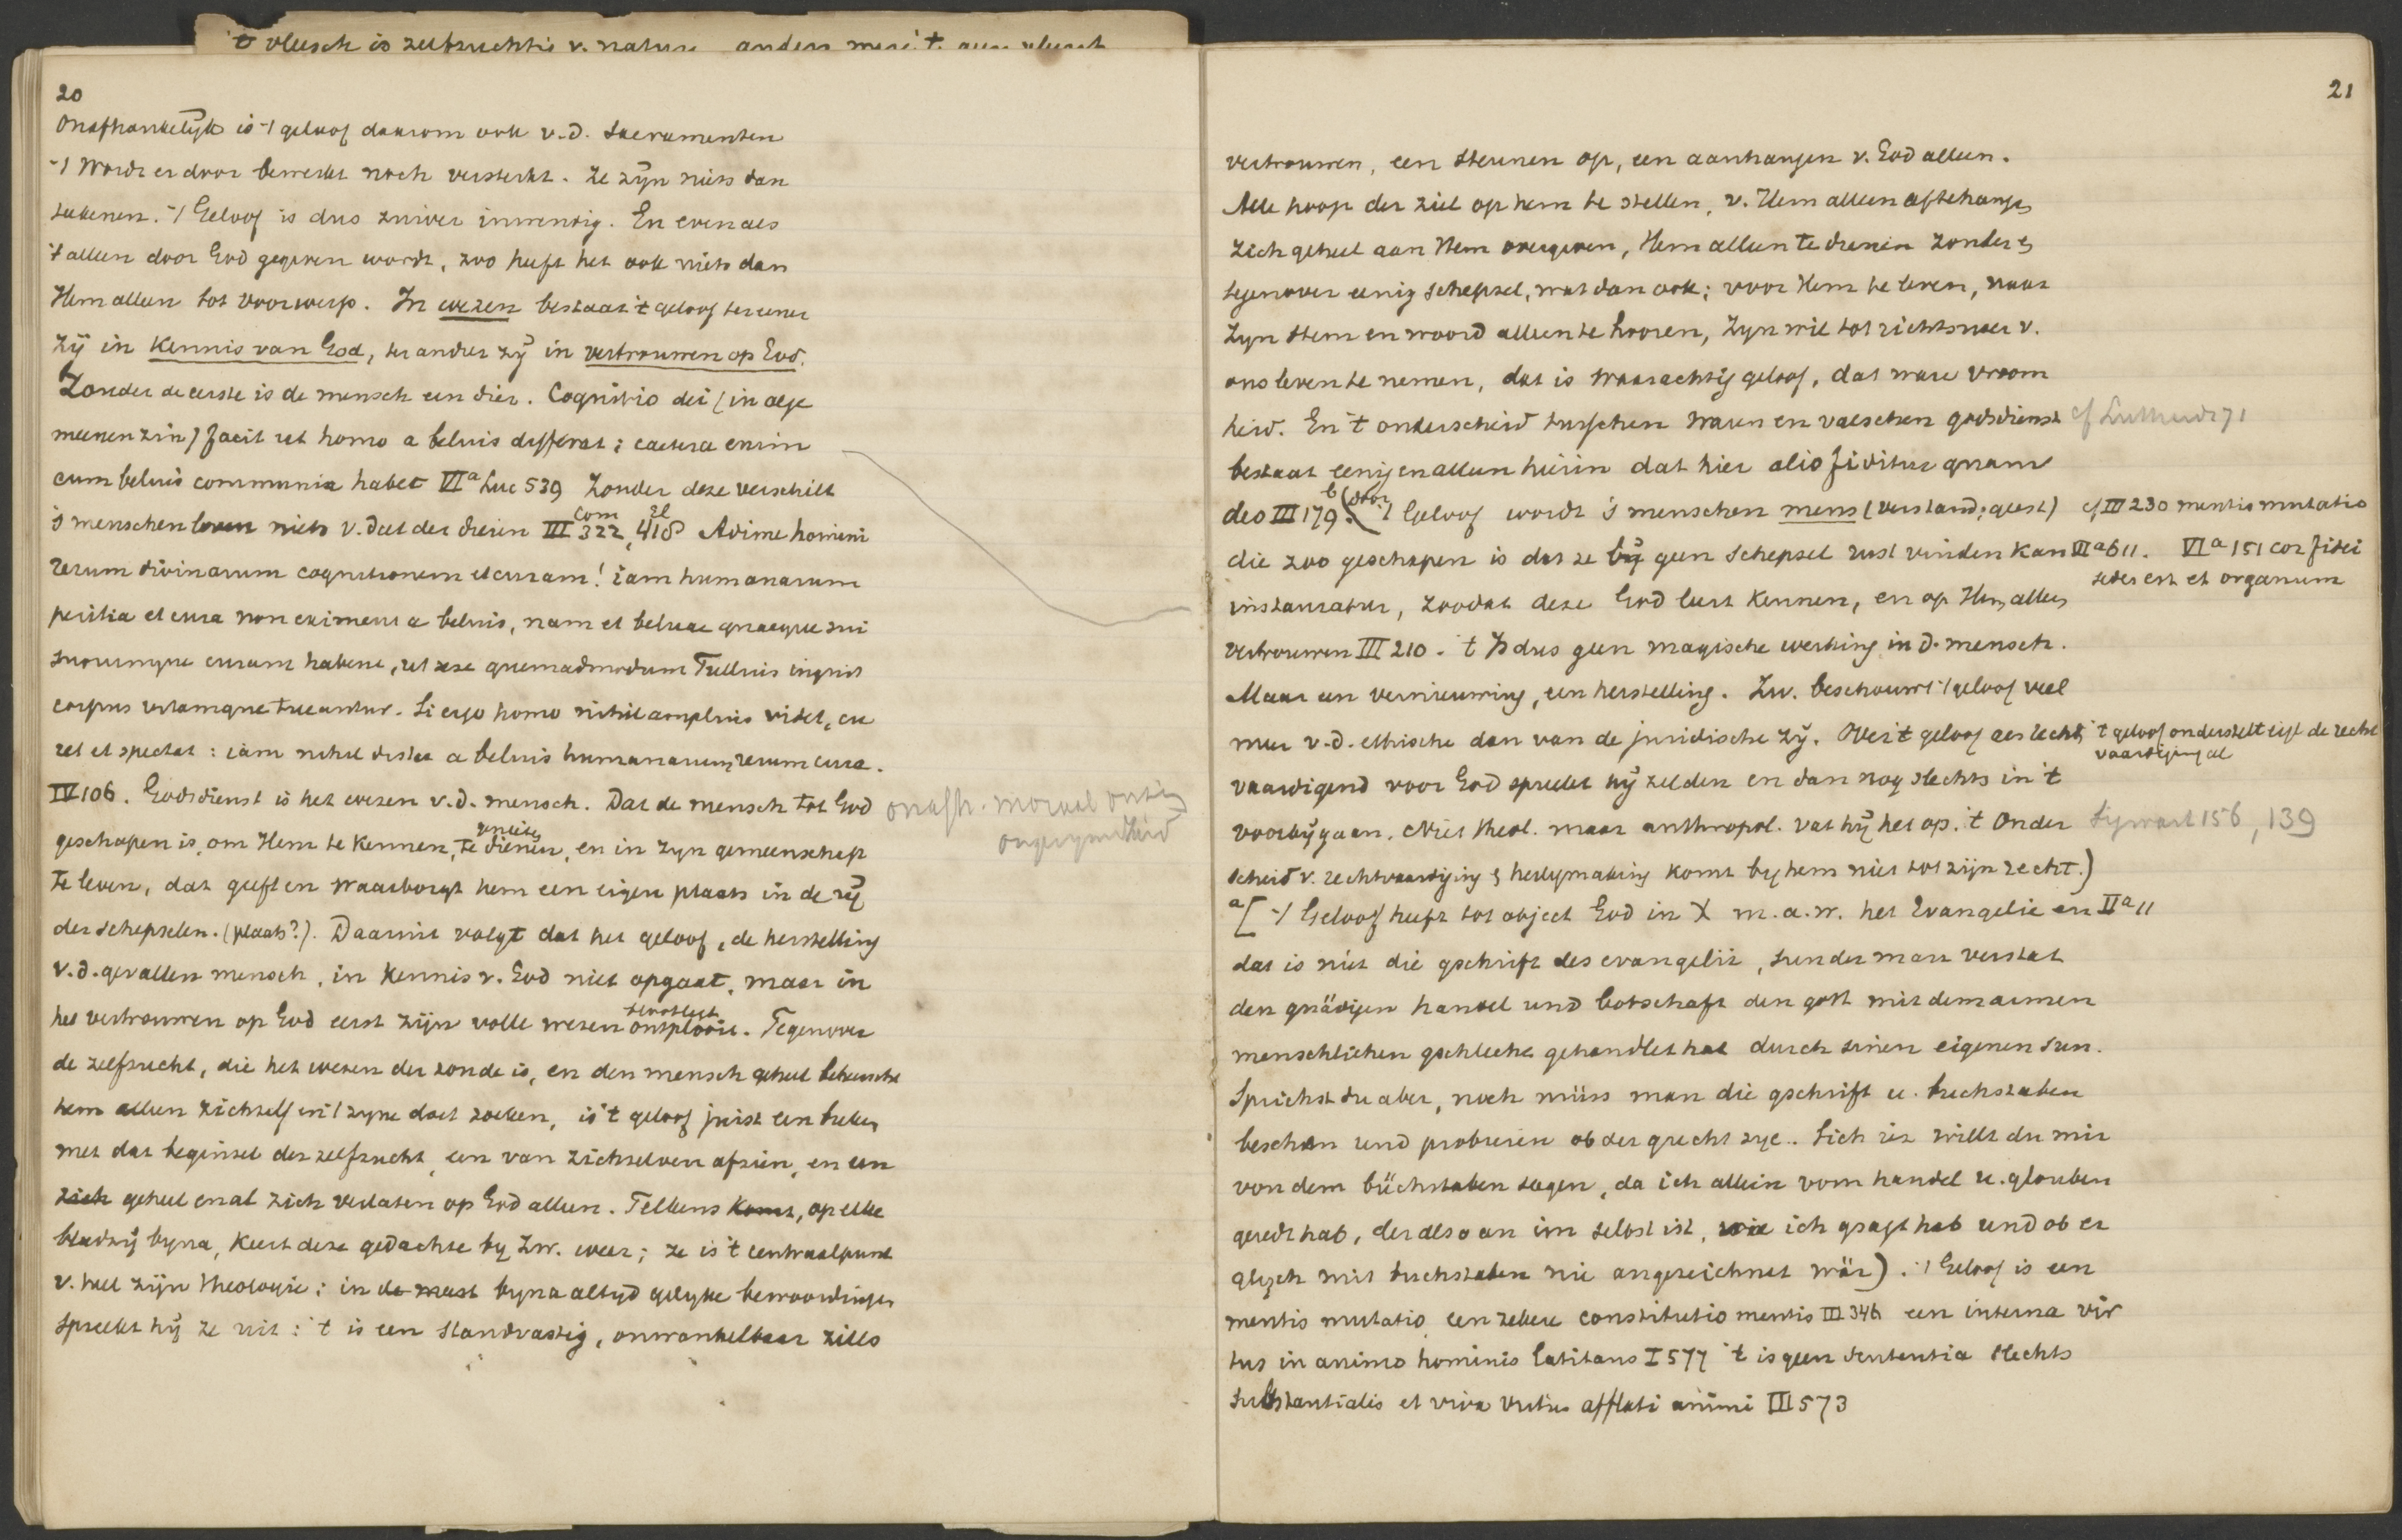 't vleesch is zelfzuchtig v. nature anders were 't geen vleesch
20
Onafhankelijk is 't geloof daarom ook v.d. Sacramenten
't Wordt er door bewerkt noch versterkt. Ze zijn niets dan
teekenen. 't Geloof is dus zuiver inwendig. En evenals
't alleen door God gegeven wordt, zoo heeft het ook niets dan
Hem alleen tot voorwerp. In wezen bestaat 't geloof ter eener
zij in Kennis van God, ter ander zij in vertrouwen op God.
Zonder de eerste is de mensch een dier. Cognitio dei (in alge
meenen zin) facit ut homo a beluis differat; caetera enim
cum beluis communia habet VIa Luc 539 Zonder deze verschilt
's menschen leven niets v. dat der dieren III com 322, el 418 Adime homini
rerum divinarum cognitionem et curam! iam humanarum
peritia et cura non eximetur a beluis, nam et beluae quaeque sui
suorumque curam habent, ut sese quemadmodum Tullius inquit
corpus vitamque tueantur. Si ergo homo nihil amplius videt, cu
ret et spectat: iam nihil distat a beluis humanarum rerum cura.
IV 106. Godsdienst is het wezen v.d. mensch. Dat de mensch tot God
geschapen is, om Hem te Kennen, te dienen, en in zyn gemeenschap
te leven, dat geeft en waarborgt hem een eigen plaats in de rij
der schepselen. (plaats?). Daaruit volgt dat het geloof, de herstelling
v.d. gevallen mensch, in Kennis v. God niet opgaat, maar in
het vertrouwen op God eerst zijn volle wezen ontplooit. Tegenover
de zelfzucht, die het wezen der zonde is, en den mensch geheel beheerscht
hem alleen zichzelf en 't zyne doet zoeken, is 't geloof juist een breken
met dat beginsel der zelfzucht, een van zichzelven afzien, en een
zich geheel en al zich verlaten op God alleen. Telkens komt, op elke
bladzij byna, keert deze gedachte by Zw. weer; ze is 't centraalpunt
v. heel zijn theologie; in de meest byna altyd gelyke bewoordingen
spreekt hij ze uit: 't is een standvastig, onwankelbaar
onafh. moraal
21
vertrouwen, een steunen op, een aanhangen v. God alleen.
Alle hoop der ziel op hem te stellen, v. Hem alleen aftehangen
zich geheel aan Hem overgeven, Hem alleen te dienen zonder &
tegenover eenig schepsel, wat dan ook; voor Hem te leven, naar
Zyn stem en woord alleen te hooren, Zyn wil tot richtsnoer v.
ons leven te nemen, dat is waarachtig geloof, dat ware vroom
heid. En 't onderscheid tusschen waren en valschen godsdienst
bestaat eenig en alleen hierin dat hier alio fiditur quam
deo III 179. b (door 't Geloof wordt 's menschen mens (verstand; geest)
die zoo geschapen is dat ze bij geen schepsel rust vinden kan
instauratur, zoodat deze God leert Kennen, en op Hem alleen
vertrouwen III 210. 't Is dus geen magische werking in d. mensch.
Maar een vernieuwing, een herstelling. Zw. beschouwt 't geloof veel
meer v.d. ethische dan van de juridische zij. Over 't geloof als recht
vaardigend voor God spreekt hij zelden en dan nog slechts in 't
voorbijgaan. Niet theol. maar anthropol. vat hij het op. 't Onder
scheid v. rechtvaardiging & heiligmaking komt by hem niet tot zijn recht.)
a [ 't Geloof heeft tot object God in X m.a.w. het Evangelie en IIa 11
dat is nit die gschrift des evangelii, sunder man verstat
den gnädigen handel und botschaft den gott mit dem armen
menschlichen gschlecht gehandlet hat durch sinen eigenen sun.
Sprichst du aber, noch müss man die gschrift u. buchstaben
beschen und probieren ob der grecht sye. Sich iez willt du mir
von dem büchstaben sagen, da ich allein vom handel u. glouben
geredt hab, der also an im selbst ist, wie ich gsagt hab und ob er
glych mit buchstaben nie angezeichnet wär). 't Geloof is een
mentis mutatio een zekere constitutio mentis III 346 een interna vir
tus in animo hominis latitans I 577 't is geen sententia slechts
substantialis et viva virtus afflati animi III 573
cf
cf III 230 mentis mutatio
IIIa 611. VIa 151 cor fidei
sedes est et organum
't geloof onderstelt eigl de recht
vaardiging al
Sigwart 156, 139